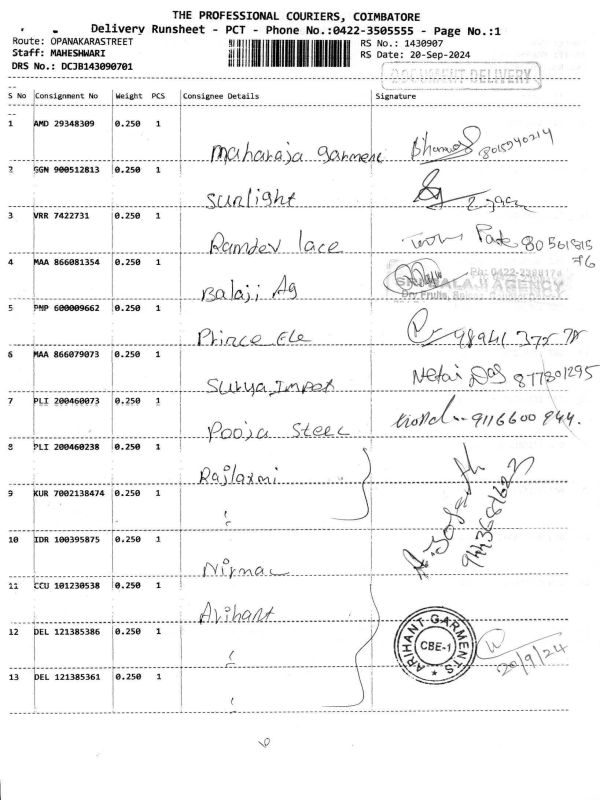 THE PROFESSIONAL COURIERS, COIMBATORE
Delivery Runsheet - PCT - Phone No.:0422-3505555 - Page No.:1
Route: OPANAKARASTREET
Staff: MAHESHWARI
DRS No.: DCJB143090701
RS No.: 1430907
RS Date: 20-Sep-2024
DOCUMENT DELIVERY
S No Consignment No Weight PCS Consignee Details Signature
1 AMD 29348309 0.250 1
maharaja garment
2 GGN 900512813 0.250 1
Sunlight
3 VRR 7422731 0.250 1
Ramdev lace
4 MAA 866081354 0.250 1
Balaji Ag
Ph: 0422-
SRI BALAJI AGENCY
Dry Fruits,
5 PNP 600009662 0.250 1
Prince Ele
6 MAA 866079073 0.250 1
Surya Impex Netai Das 877801295
7 PLI 200460073 0.250 1
Pooja Steel 9116600944.
8 PLI 200460238 0.250 1
Rajlaxmi
9 KUR 7002138474 0.250 1
10 IDR 100395875 0.250 1
Nirmal
11 CCU 101230538 0.250 1
Arihant
12 DEL 121385386 0.250 1
ARIHANT GARMENTS
CBE-1
20/9/24
13 DEL 121385361 0.250 1